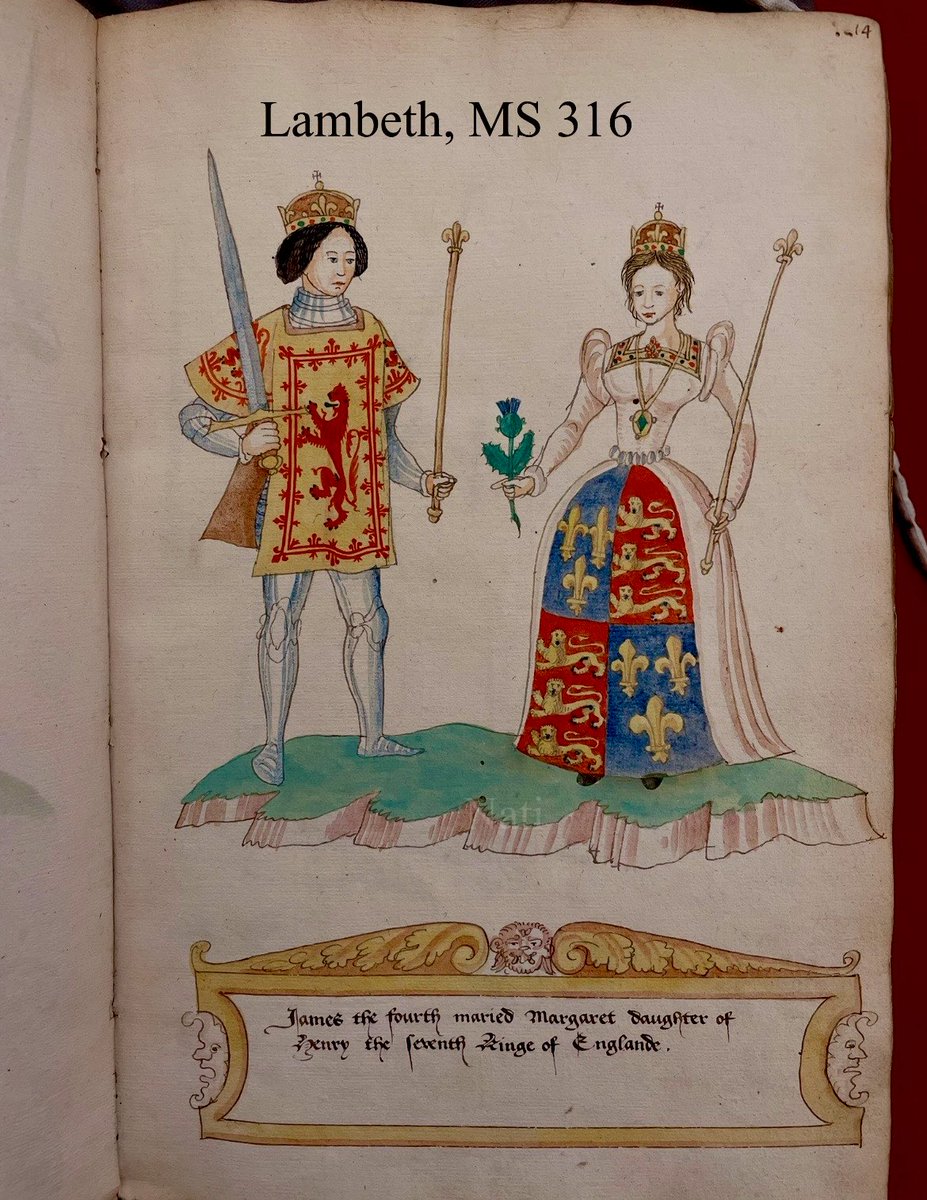 14
Lambeth, MS 316
James the fourth maried Margaret daughter of
Henry the seventh Kinge of Englande.